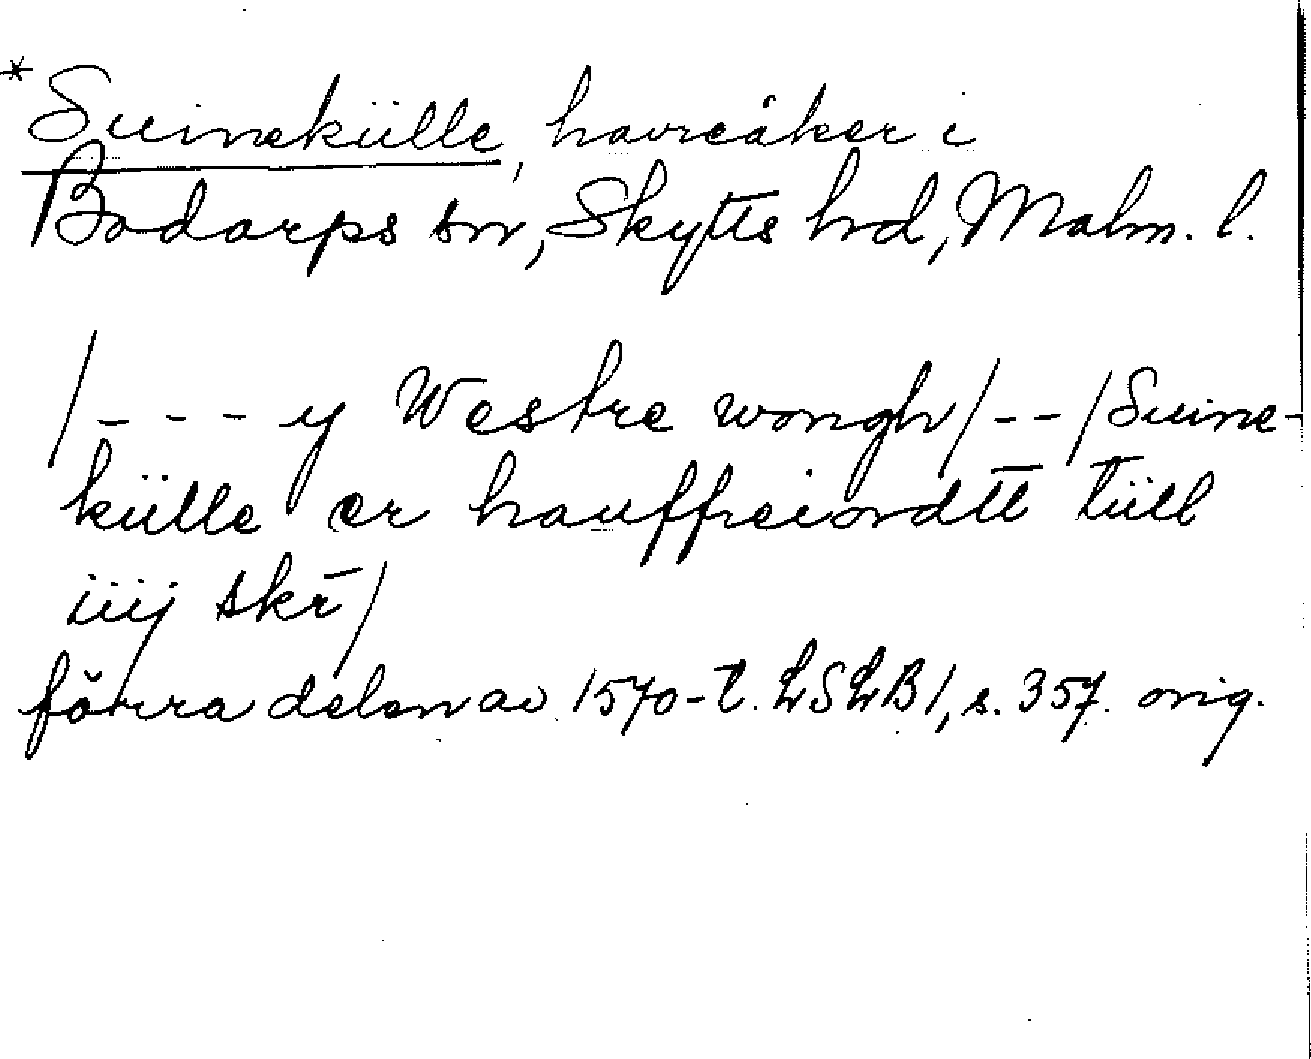 *Suinekülle, havreåker i
Bodarps sn, Skytts hd, Malm. l.
/- - - y Westre wongh/ - - /Suine-
külle er hauffreiordtt tüll
iiij skr̄/
förra delen av 1570-t. LSLB 1, s. 357. orig.